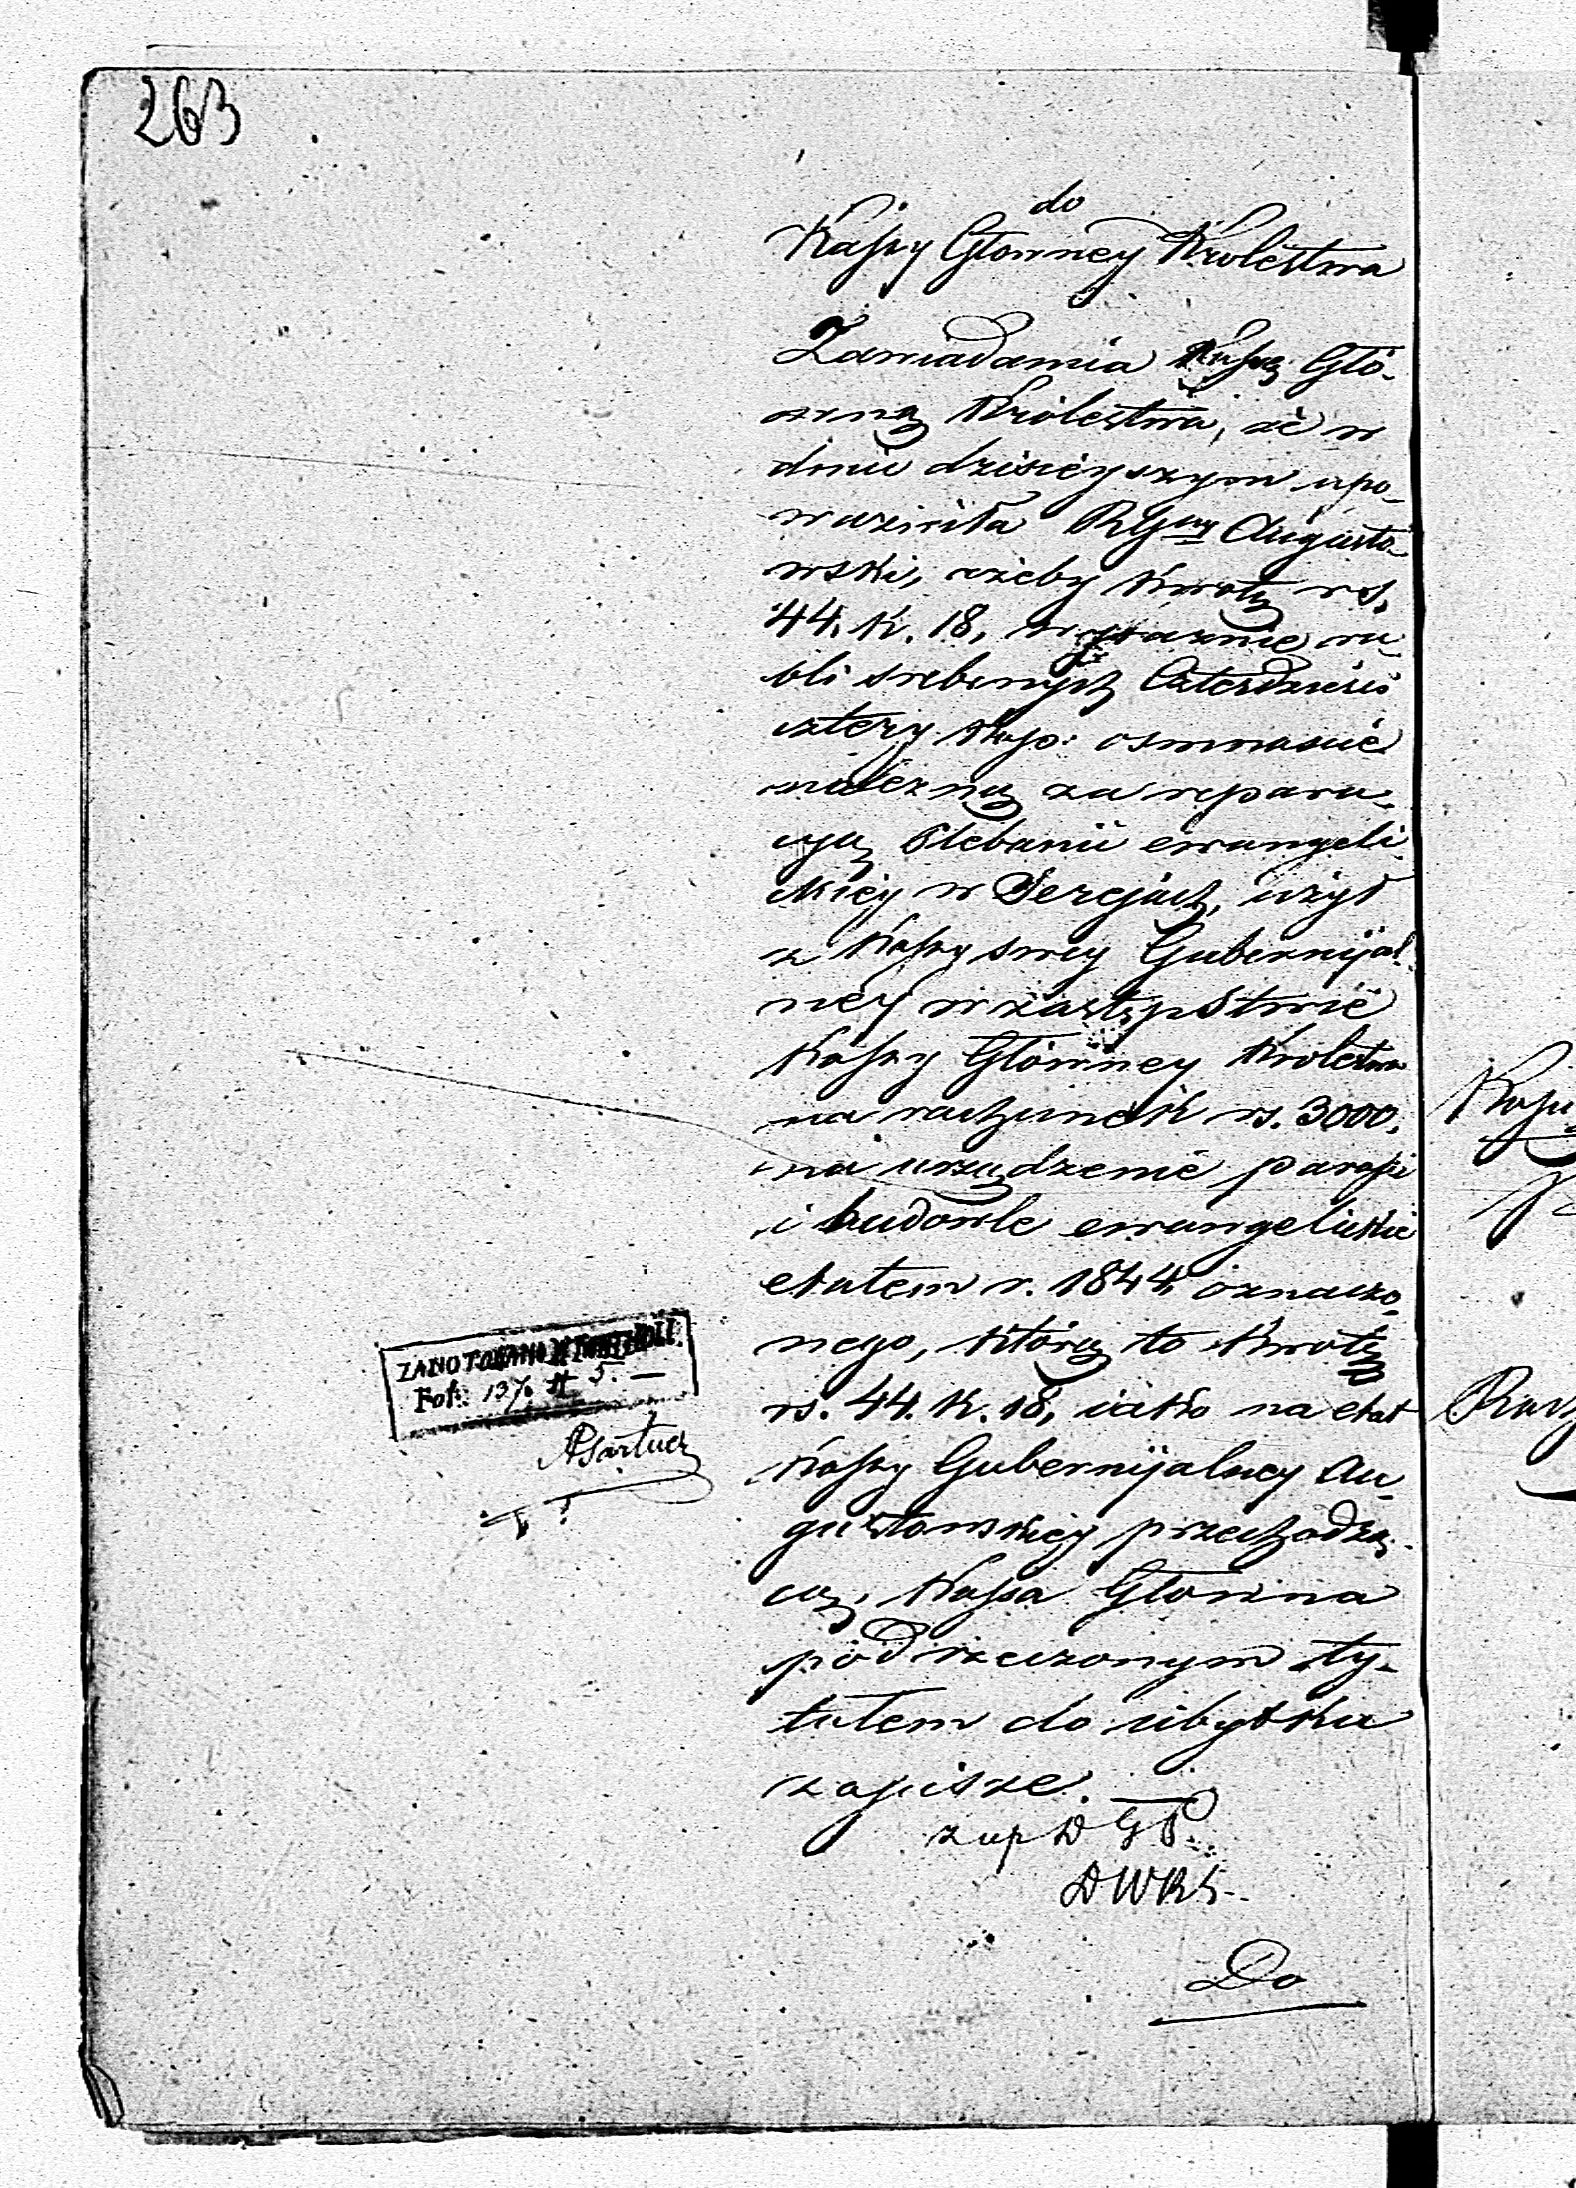 263
do
Kassy Głowney Krolestwa
Zawiadamia Kassę Głó-
wną Królestwa, że w
dniu dzisieyszym upo-
ważniła RGny Augusto-
wski, ażeby kwotę rs.
44. k. 18, wyraznie ru-
bli srebrnych Czterdzieści
cztery kop: osmnascie
należną za repara-
cyą Plebanii ewangeli-
ckiéy w Serejach, użył
z Kassy swey Gubernijal-
ney w zastępstwie
Kassy Główney Krolestwa
na rachunek rs. 3000,
na urządzenie parafii
i budowle ewangelickie
etatem r. 1844 oznaczo-
nego, którą to kwotę
rs. 44. k. 18, iako na etat
Kassy Gubernijalney Au-
gustowskiey przechodzą-
cą, Kassa Głowna
pod rzeczonym ty-
tułem do ubytku
zapisze.
z up D G P.
D W R S.
ZANOTOWANO W KONTROLI
Fol: 137. # 5. —
Do